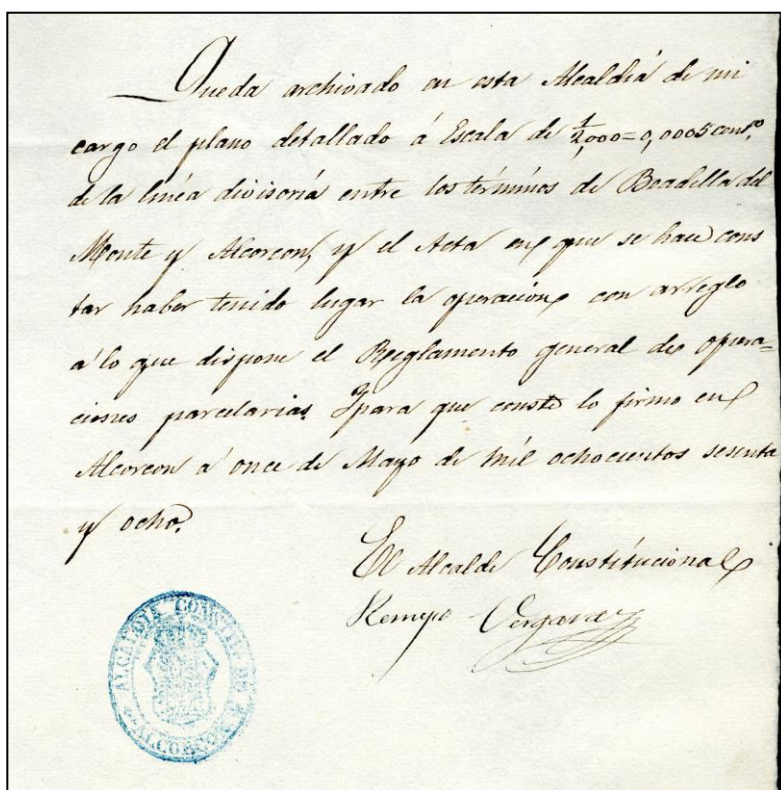 Queda archivado en esta Alcaldiá de mi
cargo el plano detallado á Escala de 1/2,000=0,0005 
de la linéa divisoriá entre los términos de Boadilla del
Monte y Alcorcon, y el Acta en que se hace cons
tar haber tenido lugar la operacion con arreglo
a' lo que dispone el Reglamento general de opera=
ciones parcelarias. Y para que conste lo firmo en
Alcorcon a' once de Mayo de mil ochocientos sesenta
y ocho.
El Alcalde Constitucional
Vergara
ALCALDIA CONSTIT DE
ALCORCON